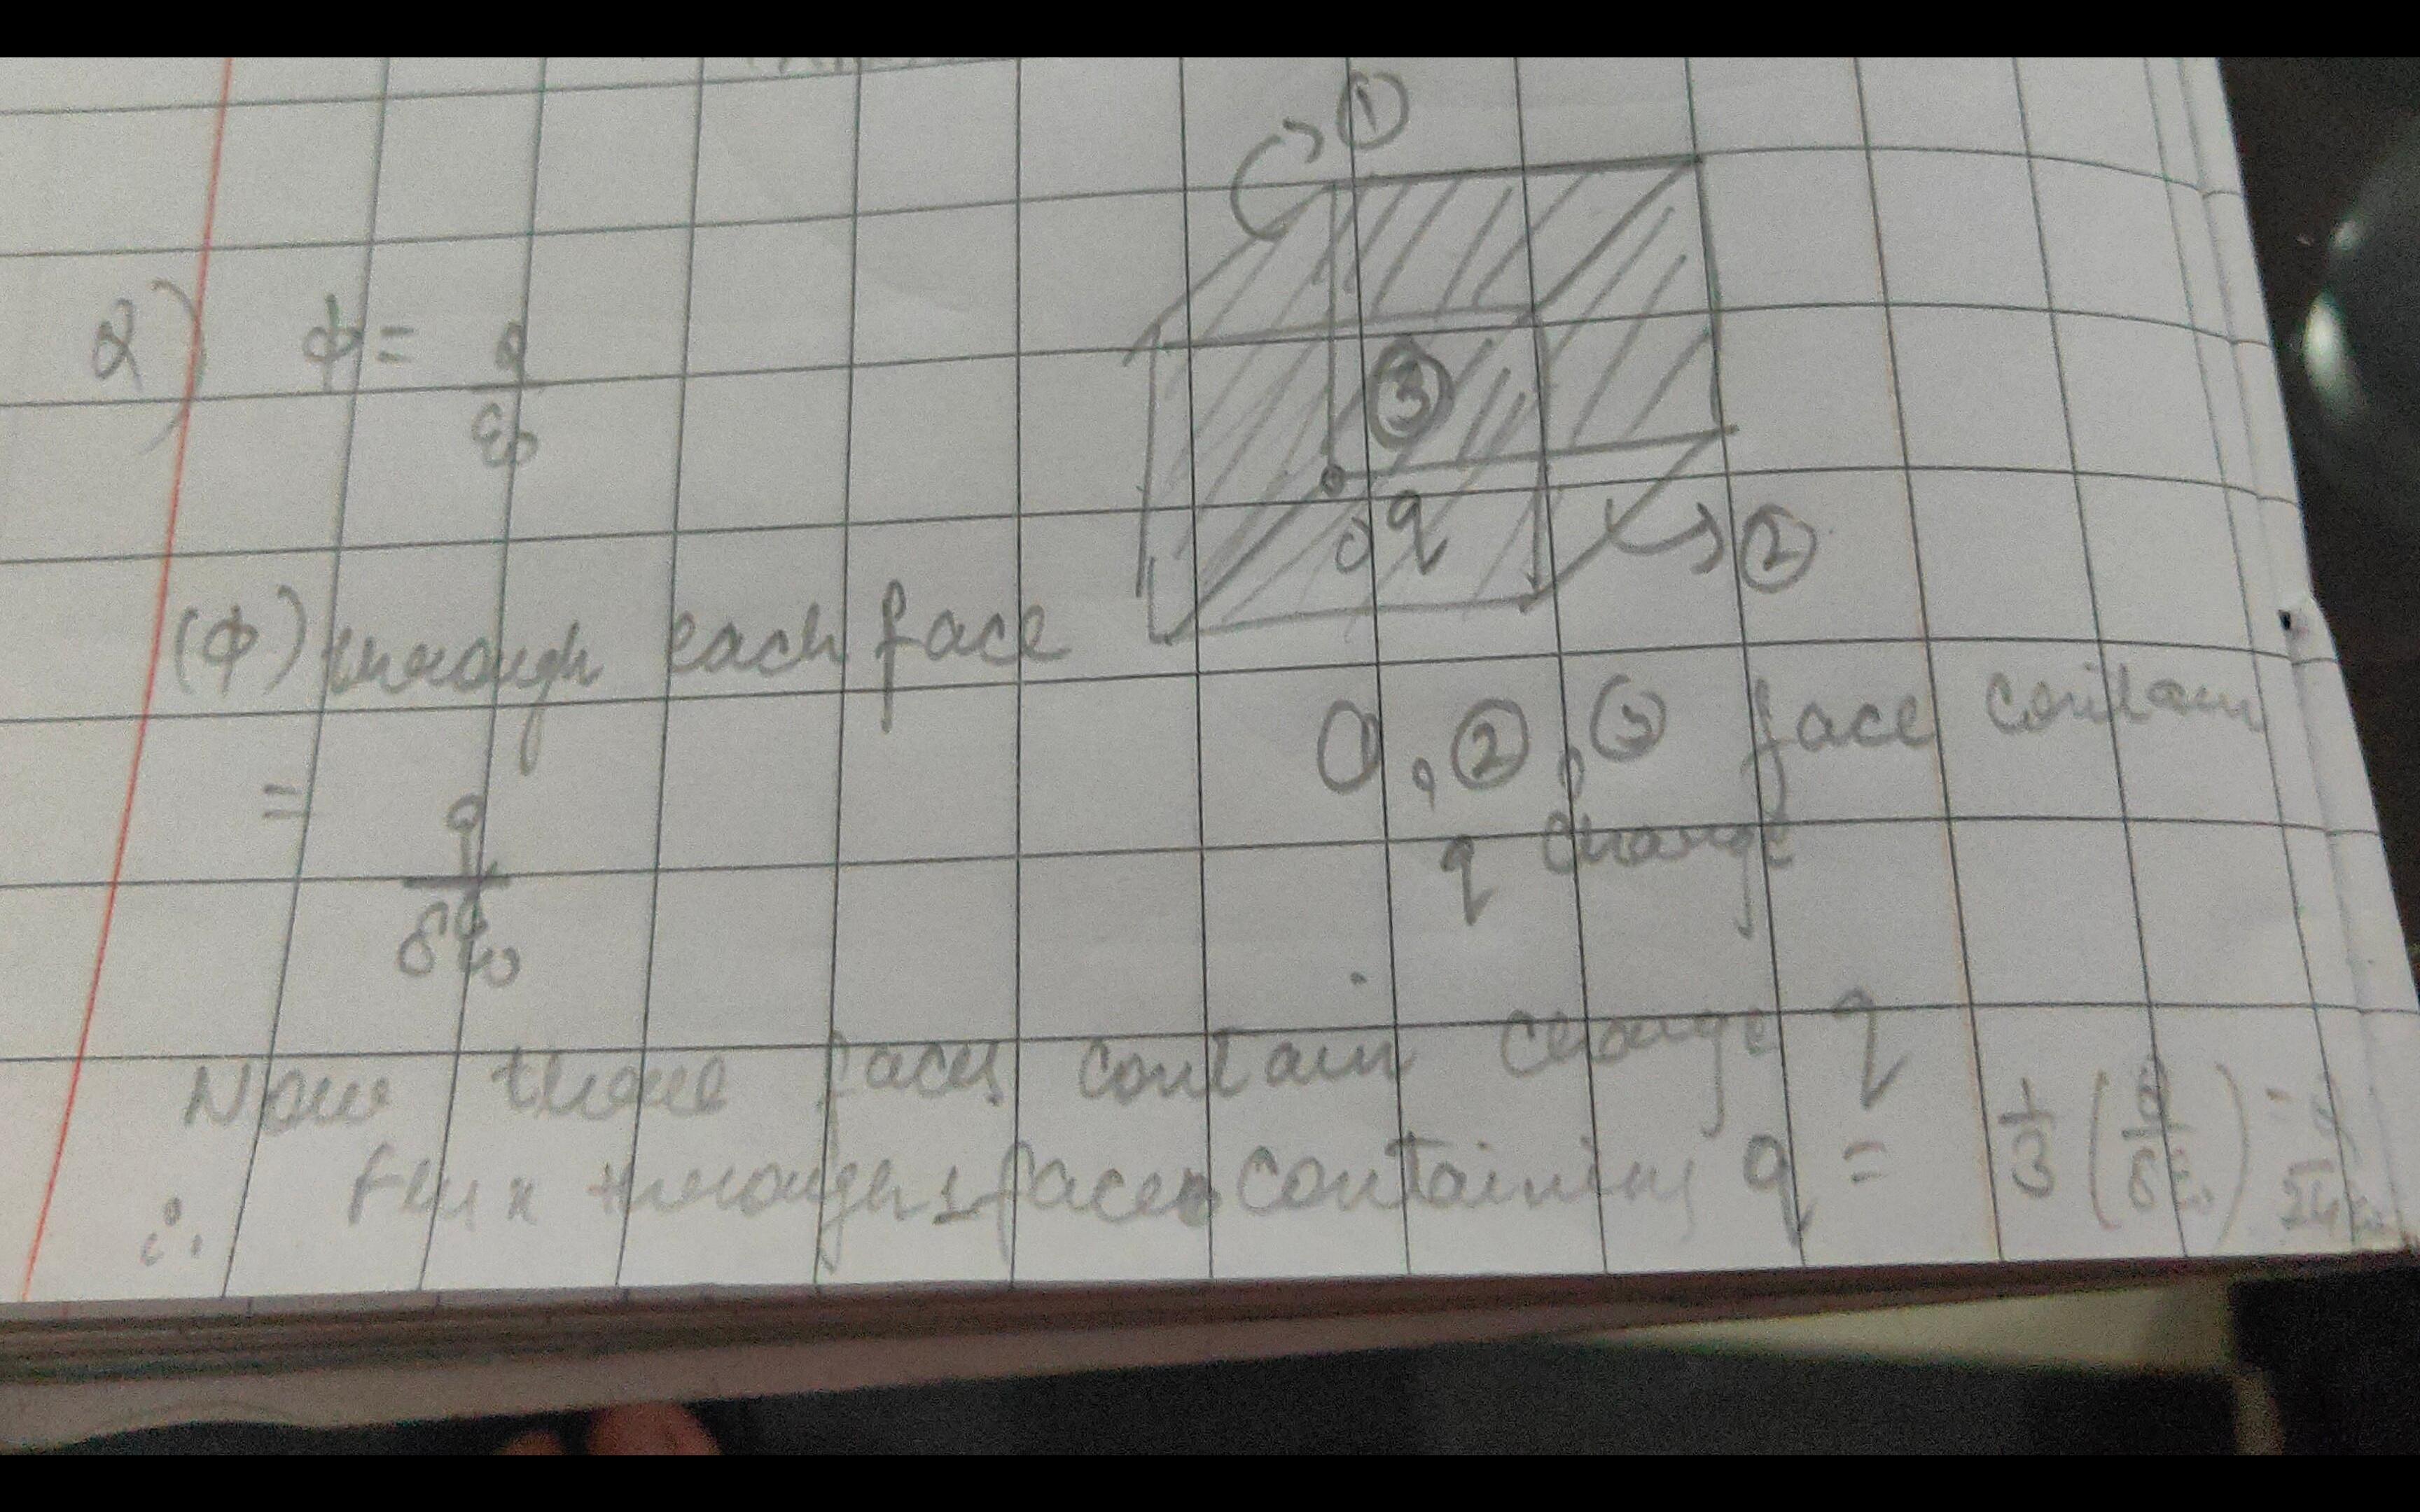 ①
2) φ = q/ε₀
③
q
②
(φ) through each face
= q/8ε₀
①, ②, ③ face contain
q charge
Now three faces contain charge q
∴ flux through 1 face containing q = 1/3 (q/8ε₀) = q/24ε₀